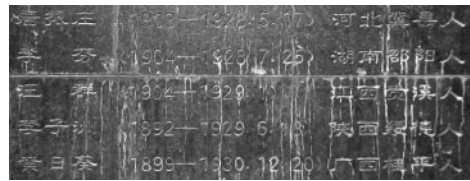 庄 (1903—1928.5.17) 河北冀县人
李芬 (1904—1928.7.26) 湖南邵阳人
汪群 (1904—1929. 江西贵溪人
李子洲 (1892—1929.6.18) 陕西绥德人
黄日葵 (1899—1930.12.20) 广西桂平人